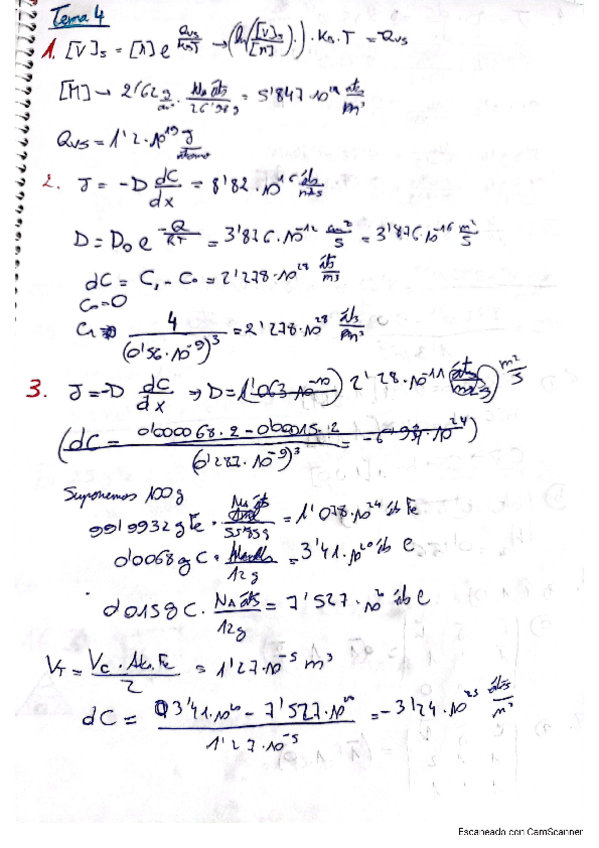 Tema 4
1. [V]s = [n] e^(Qvs/KB·T) → (ln([V]s/[n])) · KB · T = Qvs
[M] → 2'62 g/cm³ · NA áts/26'98 g = 5'847·10²⁸ áts/m³
Qvs = 1'2·10¹⁹ J/átomo
2. J = -D dC/dx = 8'82·10¹⁶ áts/m²s
D = D₀ e^(-Q/RT) = 3'876·10⁻¹² cm²/s = 3'876·10⁻¹⁶ m²/s
dC = C₁ - C₀ = 2'278·10²⁸ áts/m³
C₀=0
C₁ 4/(0'56·10⁻⁹)³ = 2'278·10²⁸ áts/m³
3. J = -D dC/dx → D = 1'063·10⁻¹⁰) 2'28·10⁻¹¹ m²/s
(dC = 0'000068·2 - 0'00015·2/(0'287·10⁻⁹)³ = -6'937·10²⁴)
Suponemos 100g
99'9932 g Fe · NA áts/55'85g = 1'078·10²⁴ áts Fe
0'0068 g C · /12g = 3'41·10²⁰ áts C
0'015 g C · NA áts/12g = 7'527·10²⁰ áts C
VT = Vc · Áts. Fe/2 = 1'27·10⁻⁵ m³
dC = 3'41·10²⁰ - 7'527·10²⁰/1'27·10⁻⁵ = -3'24·10²⁵ áts/m³
Escaneado con CamScanner